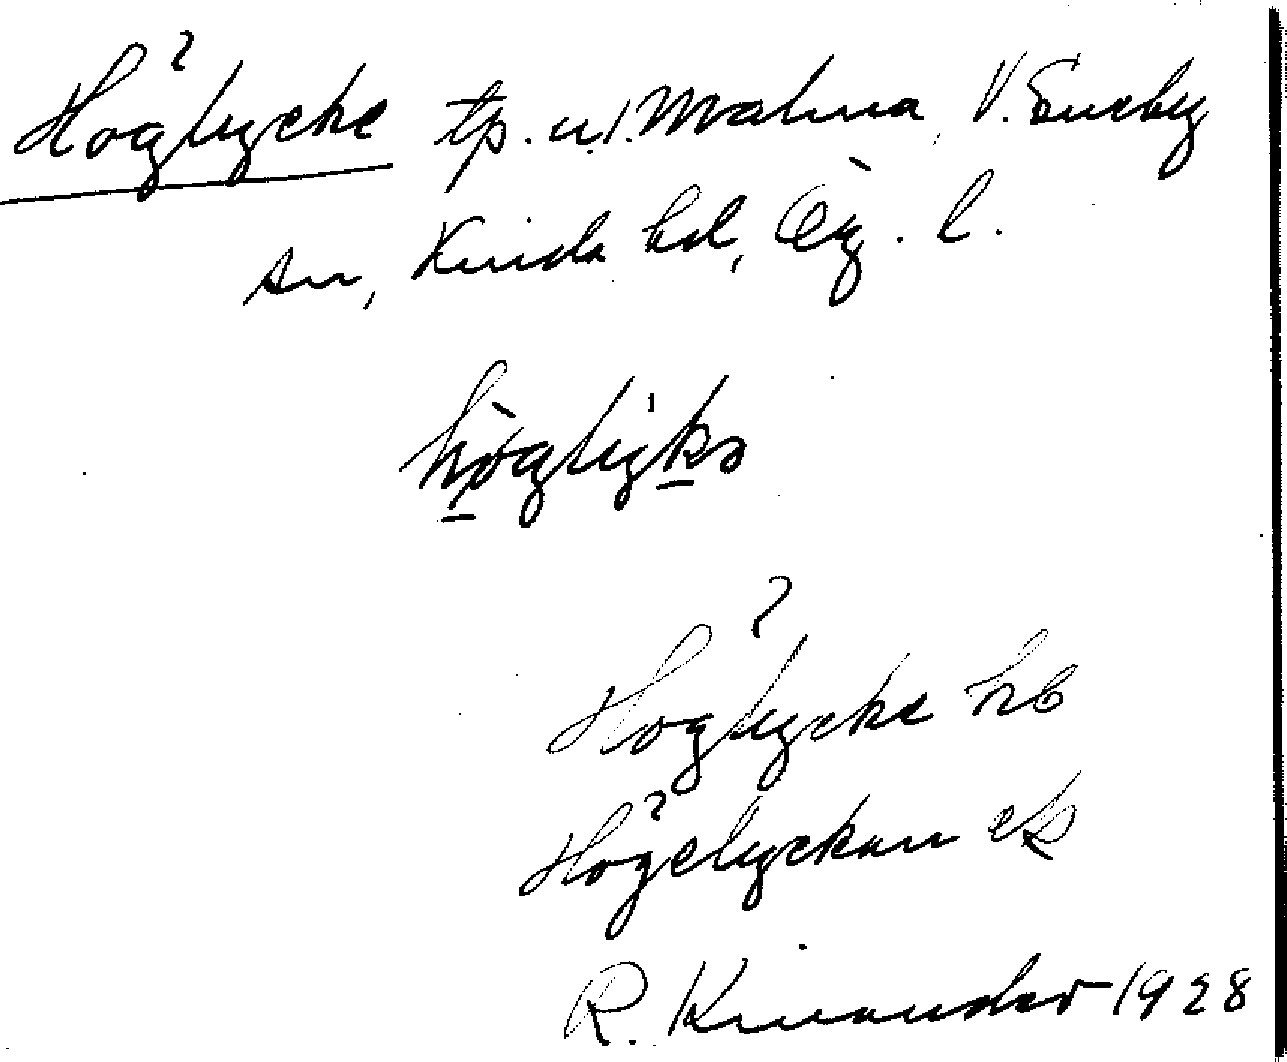 Höglycke tp. u. Malma, V. Eneby
sn, Kinda hd, Ög. l.
Höglycke hb
Högelyckan ek
R. Kinander 1928